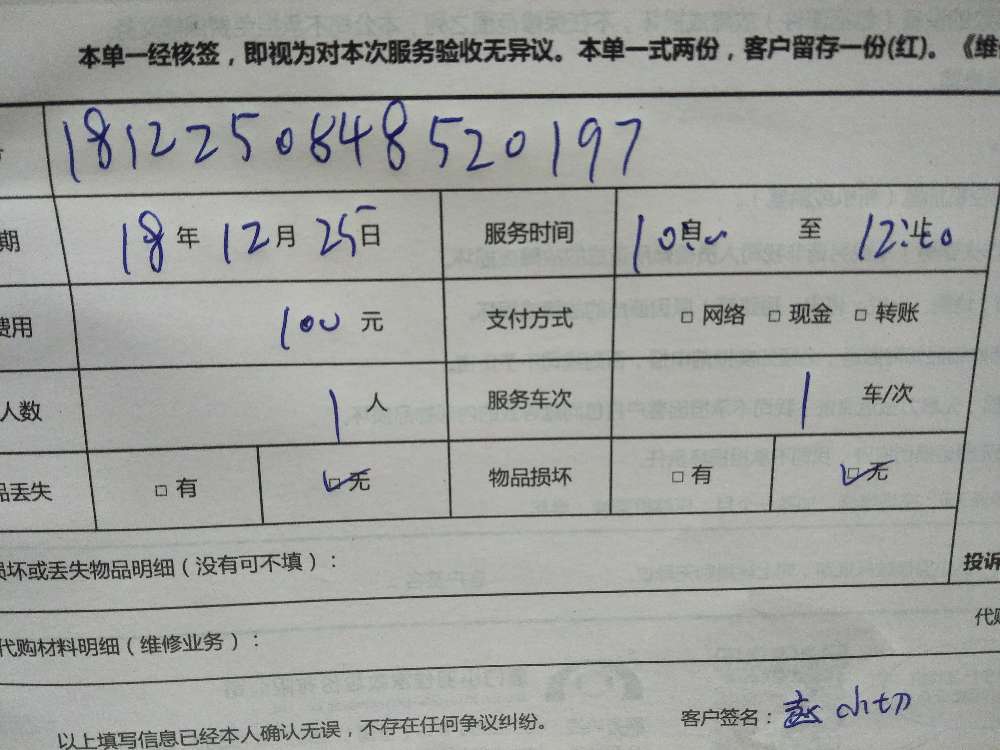 本单一经核签，即视为对本次服务验收无异议。本单一式两份，客户留存一份(红)。《维
1812250848520197
期 18年 12月 25日 服务时间 10自 至 12止
费用 100元 支付方式 □ 网络 □ 现金 □ 转账
人数 1 人 服务车次 1 车/次
品丢失 □ 有 □ 无 物品损坏 □ 有 □ 无
损坏或丢失物品明细（没有可不填）：
投诉
代购材料明细（维修业务）：
代购
以上填写信息已经本人确认无误，不存在任何争议纠纷。 客户签名：赵